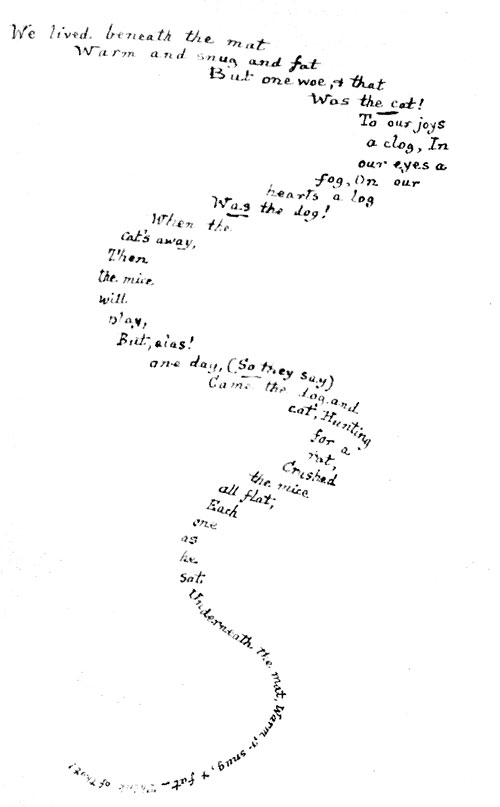 We lived beneath the mat
Warm and snug and fat
But one woe, & that
Was the cat!
To our joys
a clog, In
our eyes a
fog, On our
hearts a log
Was the dog!
When the
cat's away,
Then
the mice
will
play,
But, alas!
one day, (So they say)
Came the dog and
cat, Hunting
for a
rat,
Crushed
the mice
all flat,
Each
one
as
he
sat
Underneath the mat, Warm, & snug, & fat — Think of that!